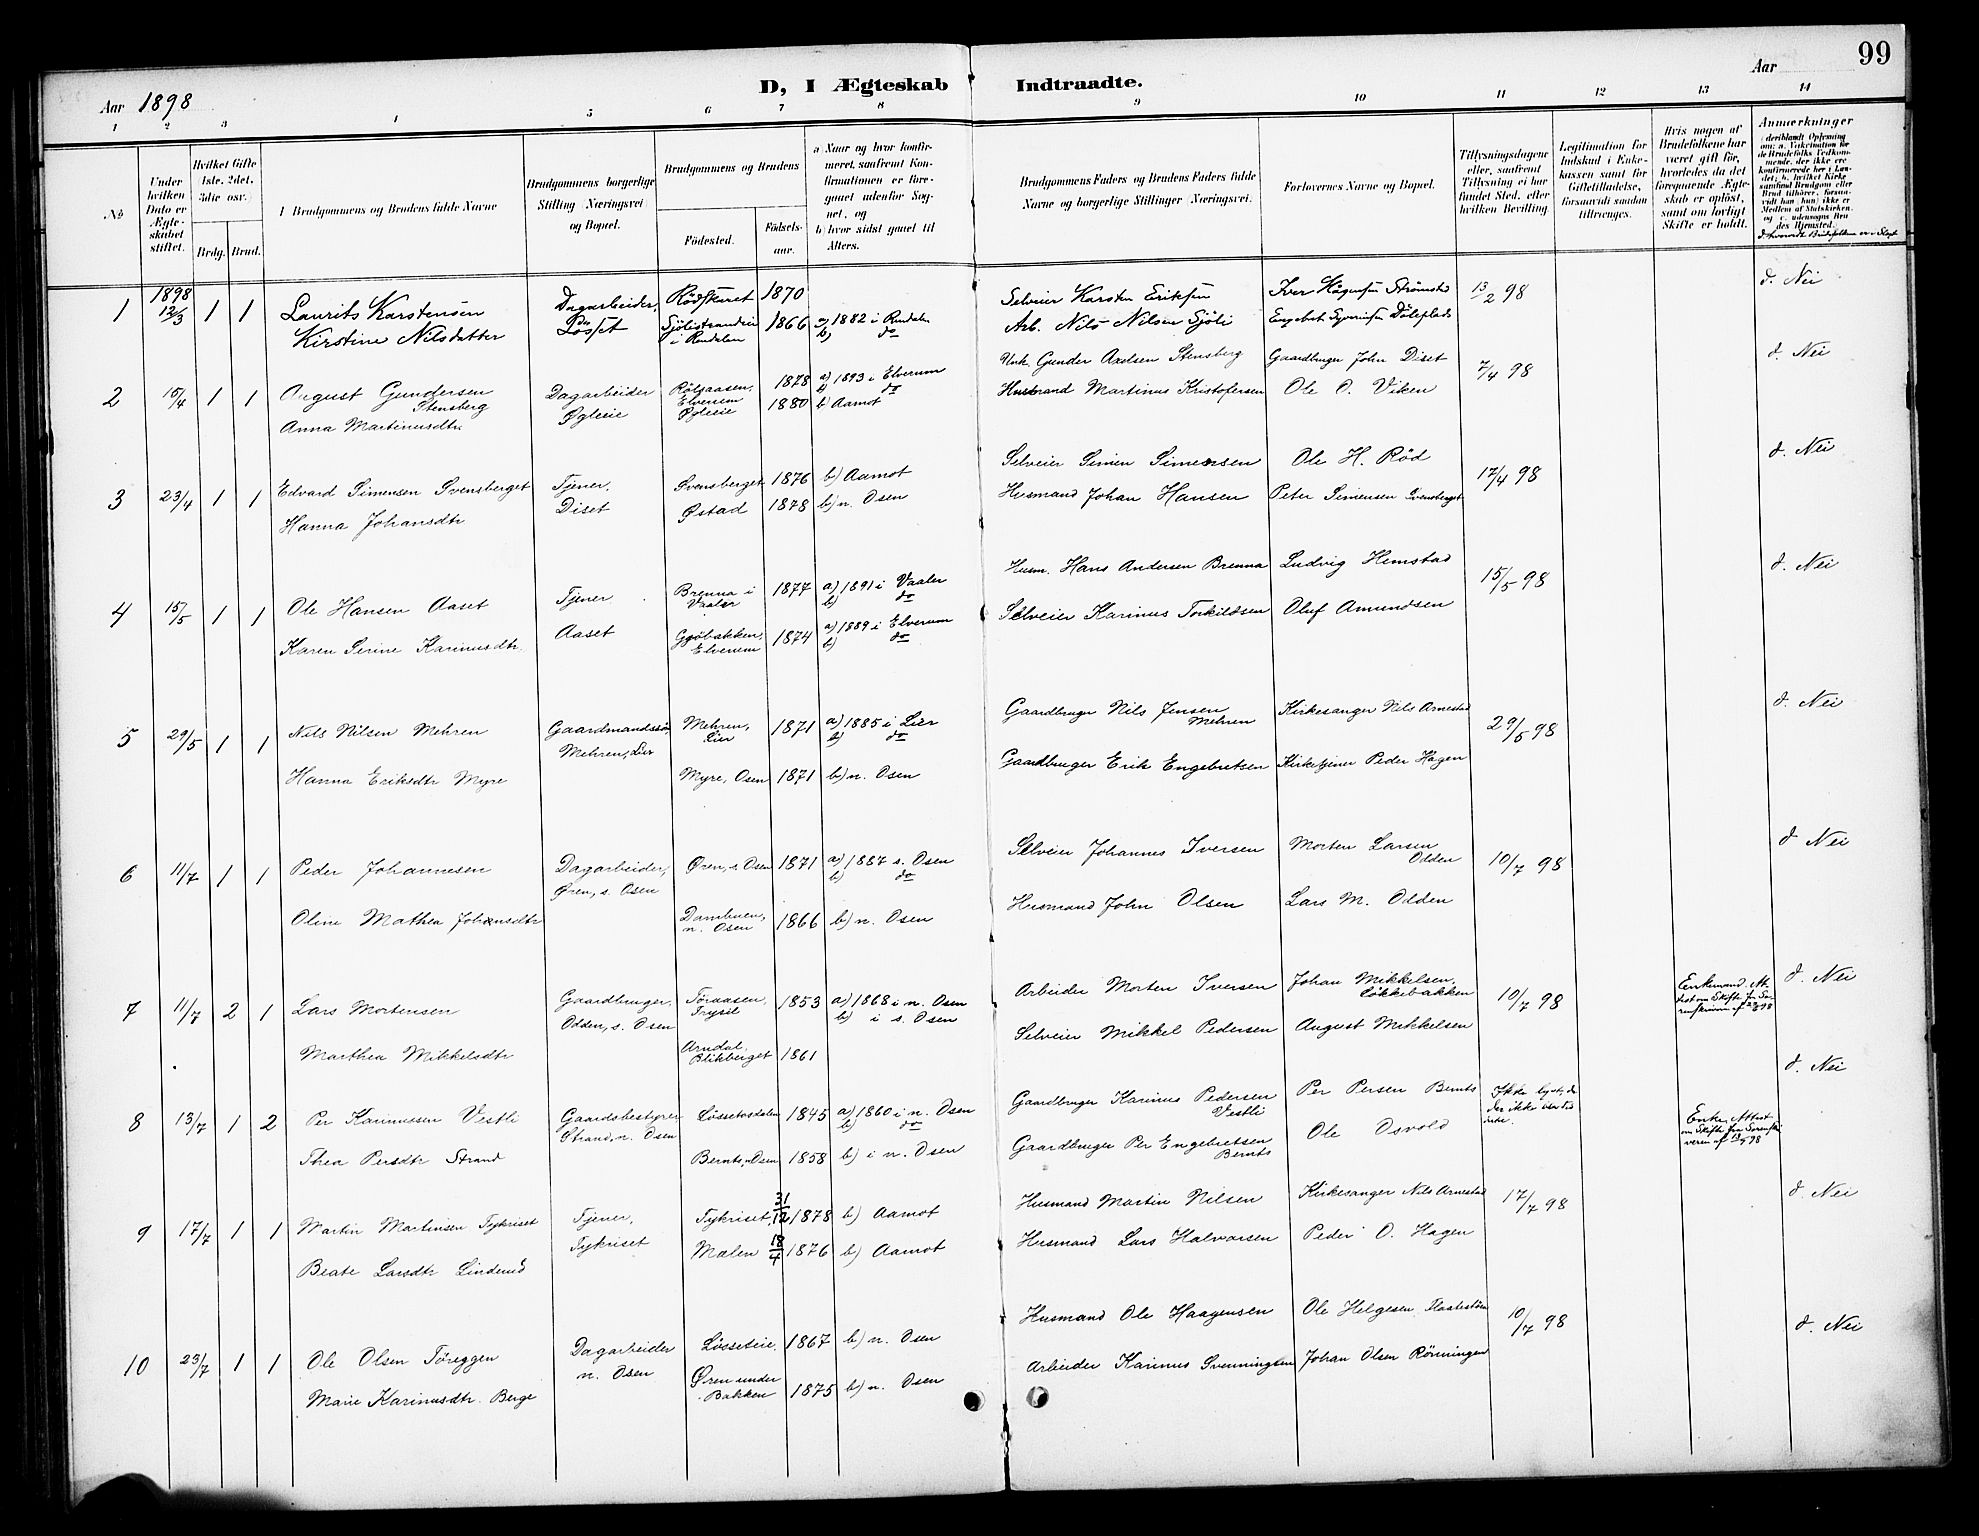 99
D, I Ægteskab Indtraadte.
Aar 1898
Aar
1 2 3 4 5 6 7 8 9 10 11 12 13 14
No
Under hvilken Dato er Ægteskabet stiftet.
Hvilket Gifte (1ste, 2det, 3die osv.)
Brdg. Brud.
Brudgommens og Brudens fulde Navne
Brudgommens borgerlige Stilling (Næringsvei) og Bopæl.
Brudgommens og Brudens
Fødested.
Fødselsaar.
a Naar og hvor konfirmeret, saafremt Konfirmationen er foregaaet udenfor Sognet, og
b) hvor sidst gaaet til Alters.
Brudgommens Faders og Brudens Faders fulde Navne og borgerlige Stillinger (Næringsvei).
Forlovernes Navne og Bopæl.
Tillysningsdagene eller, saafremt Tillysning ei har fundet Sted, efter hvilken Bevilling.
Legitimation for Indskud i Enkekassen samt for Giftetilladelse, forsaavidt saadan tiltrænges.
Hvis nogen af Brudefolkene har været gift før, hvorledes da det foregaaende Ægteskab er opløst, samt om lovligt Skifte er holdt.
Anmærkninger
1 1898 12/3 1 1 Laurits Karstensen Dagarbeider, Rödskaret 1870 Selveier Karsten Eriksen 13/2 98 d. Nei
Kirstine Nilsdatter Løsset Sjölistranden i Rendalen 1866 a) 1882 i Rendalen b) do Arb. Nils Nilsen Sjöli
2 15/4 1 1 August Gundersen Stensberg Dagarbeider Elverum 1878 a) 1893 i Elverum b) do Gunder Axelsen Stensberg Gaardbruger John Diset 7/4 98 d. Nei
Anna Martinusdtr Øgleie Øgleie 1880 b) Aamot Husmand Martinus Kristofersen Ole O. Viken
3 23/4 1 1 Edvard Simensen Svensberget Tjener, Svensberget 1876 b) Aamot Selveier Simen Simensen Ole H. Rød 17/4 98 d. Nei
Hanna Johansdtr Diset Østad 1878 b) n. Osen Husmand Johan Hansen Peter Simensen Svensberget
4 15/5 1 1 Ole Hansen Aaset Tjener Brenna i Vaaler 1877 a) 1891 i Vaaler b) do Husm. Hans Andersen Brenna Ludvig Hemstad 15/5 98 d. Nei
Karen Serine Karinusdtr. Aaset Elverum 1874 a) 1889 i Elverum b) do Selveier Karinus Torkildsen Oluf Amundsen
5 29/5 1 1 Nils Nilsen Mehren Gaardmandssøn Mehren, Lier 1871 a) 1885 i Lier b) do Gaardbruger Nils Jensen Mehren Kirkesanger Nils Arnestad 29/5 98 d. Nei
Hanna Eriksdtr Myre Mehren, Lier Myre, Osen 1871 b) n. Osen Gaardbruger Erik Engebretsen Kirketjener Peder Hagen
6 11/7 1 1 Peder Johannesen Dagarbeider, Øren, s. Osen 1871 a) 1887 s. Osen b) do Selveier Johannes Iversen Morten Larsen Odden 10/7 98 d Nei
Oline Mathea Johansdtr Øren, s. Osen n. Osen 1866 b) n. Osen Husmand John Olsen Lars M. Odden
7 11/7 2 1 Lars Mortensen Gaardbruger, Töraasen, Trysil 1853 a) 1868 i n. Osen b) i s. Osen Arbeider Morten Iversen Johan Mikkelsen, Løkkebakken 10/7 98 Enkemand d. Nei
Marthea Mikkelsdtr Odden, s. Osen Arndal, Blikberget 1861 Selveier Mikkel Pedersen August Mikkelsen
8 13/7 1 2 Per Karinussen Vestli Gaardsbestyrer Løssetosdalen 1845 a) 1860 i n. Osen b) do Gaardbruger Karinus Pedersen Vestli Per Persen Bernts Enke, Attest om Skifte fra d. Nei
Thea Persdtr Strand Strand, n. Osen Bernts, n. Osen 1858 b) i n. Osen Gaardbruger Per Engebretsen Bernts Ole Osvold
9 17/7 1 1 Martin Martinsen Tykriset Tjener, Tykriset 31/12 1878 b) Aamot Husmand Martin Nilsen Kirkesanger Nils Arnestad 17/7 98 d. Nei
Beate Larsdtr Linderud Tykriset Mælen 18/4 1876 b) Aamot Husmand Lars Halvorsen Peder O. Hagen
10 23/7 1 1 Ole Olsen Töreggen Dagarbeider Løsseteie 1867 b) n. Osen Husmand Ole Haagensen Ole Helgesen 10/7 98 d. Nei
Marie Karinusdtr. Berge n. Osen Øren under Bakken 1875 b) n. Osen Arbeider Karinus Svenningsen Johan Olsen Rönningen